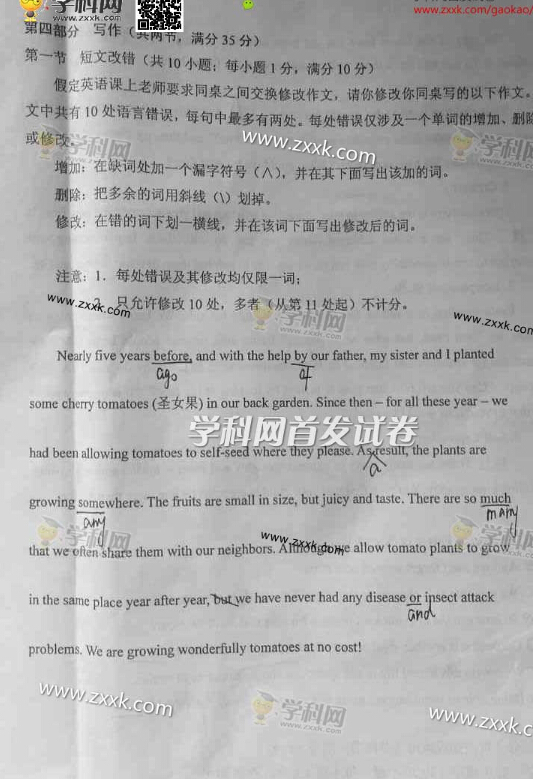 www.zxxk.com/gaokao/
第四部分 写作（共两节，满分 35 分）
第一节 短文改错（共 10 小题；每小题 1 分，满分 10 分）
假定英语课上老师要求同桌之间交换修改作文，请你修改你同桌写的以下作文。
文中共有 10 处语言错误，每句中最多有两处。每处错误仅涉及一个单词的增加、删除
或修改。
学科网
www.zxxk.com
增加：在缺词处加一个漏字符号（∧），并在其下面写出该加的词。
删除：把多余的词用斜线（\）划掉。
修改：在错的词下划一横线，并在该词下面写出修改后的词。
注意：1. 每处错误及其修改均仅限一词；
2. 只允许修改 10 处，多者（从第 11 处起）不计分。
www.zxxk.com
学科网
www.zxxk.com
Nearly five years before, and with the help by our father, my sister and I planted
ago of
some cherry tomatoes (圣女果) in our back garden. Since then – for all these year – we
学科网首发试卷
had been allowing tomatoes to self-seed where they please. As result, the plants are
a
growing somewhere. The fruits are small in size, but juicy and taste. There are so much
any many
学科网
学科网
www.zxxk.com
that we often share them with our neighbors. Although we allow tomato plants to grow
in the same place year after year, but we have never had any disease or insect attack
and
problems. We are growing wonderfully tomatoes at no cost!
www.zxxk.com
学科网
www.zxxk.com